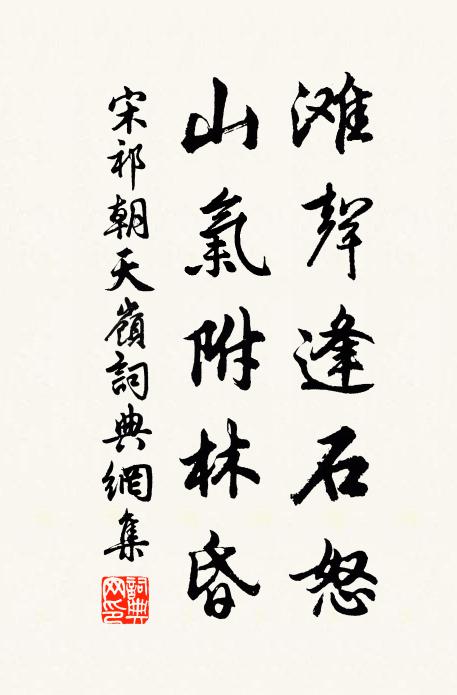 滩聲逢石怒
山氣附林昏
宋祁朝天嶺詞典網集
詞典网印